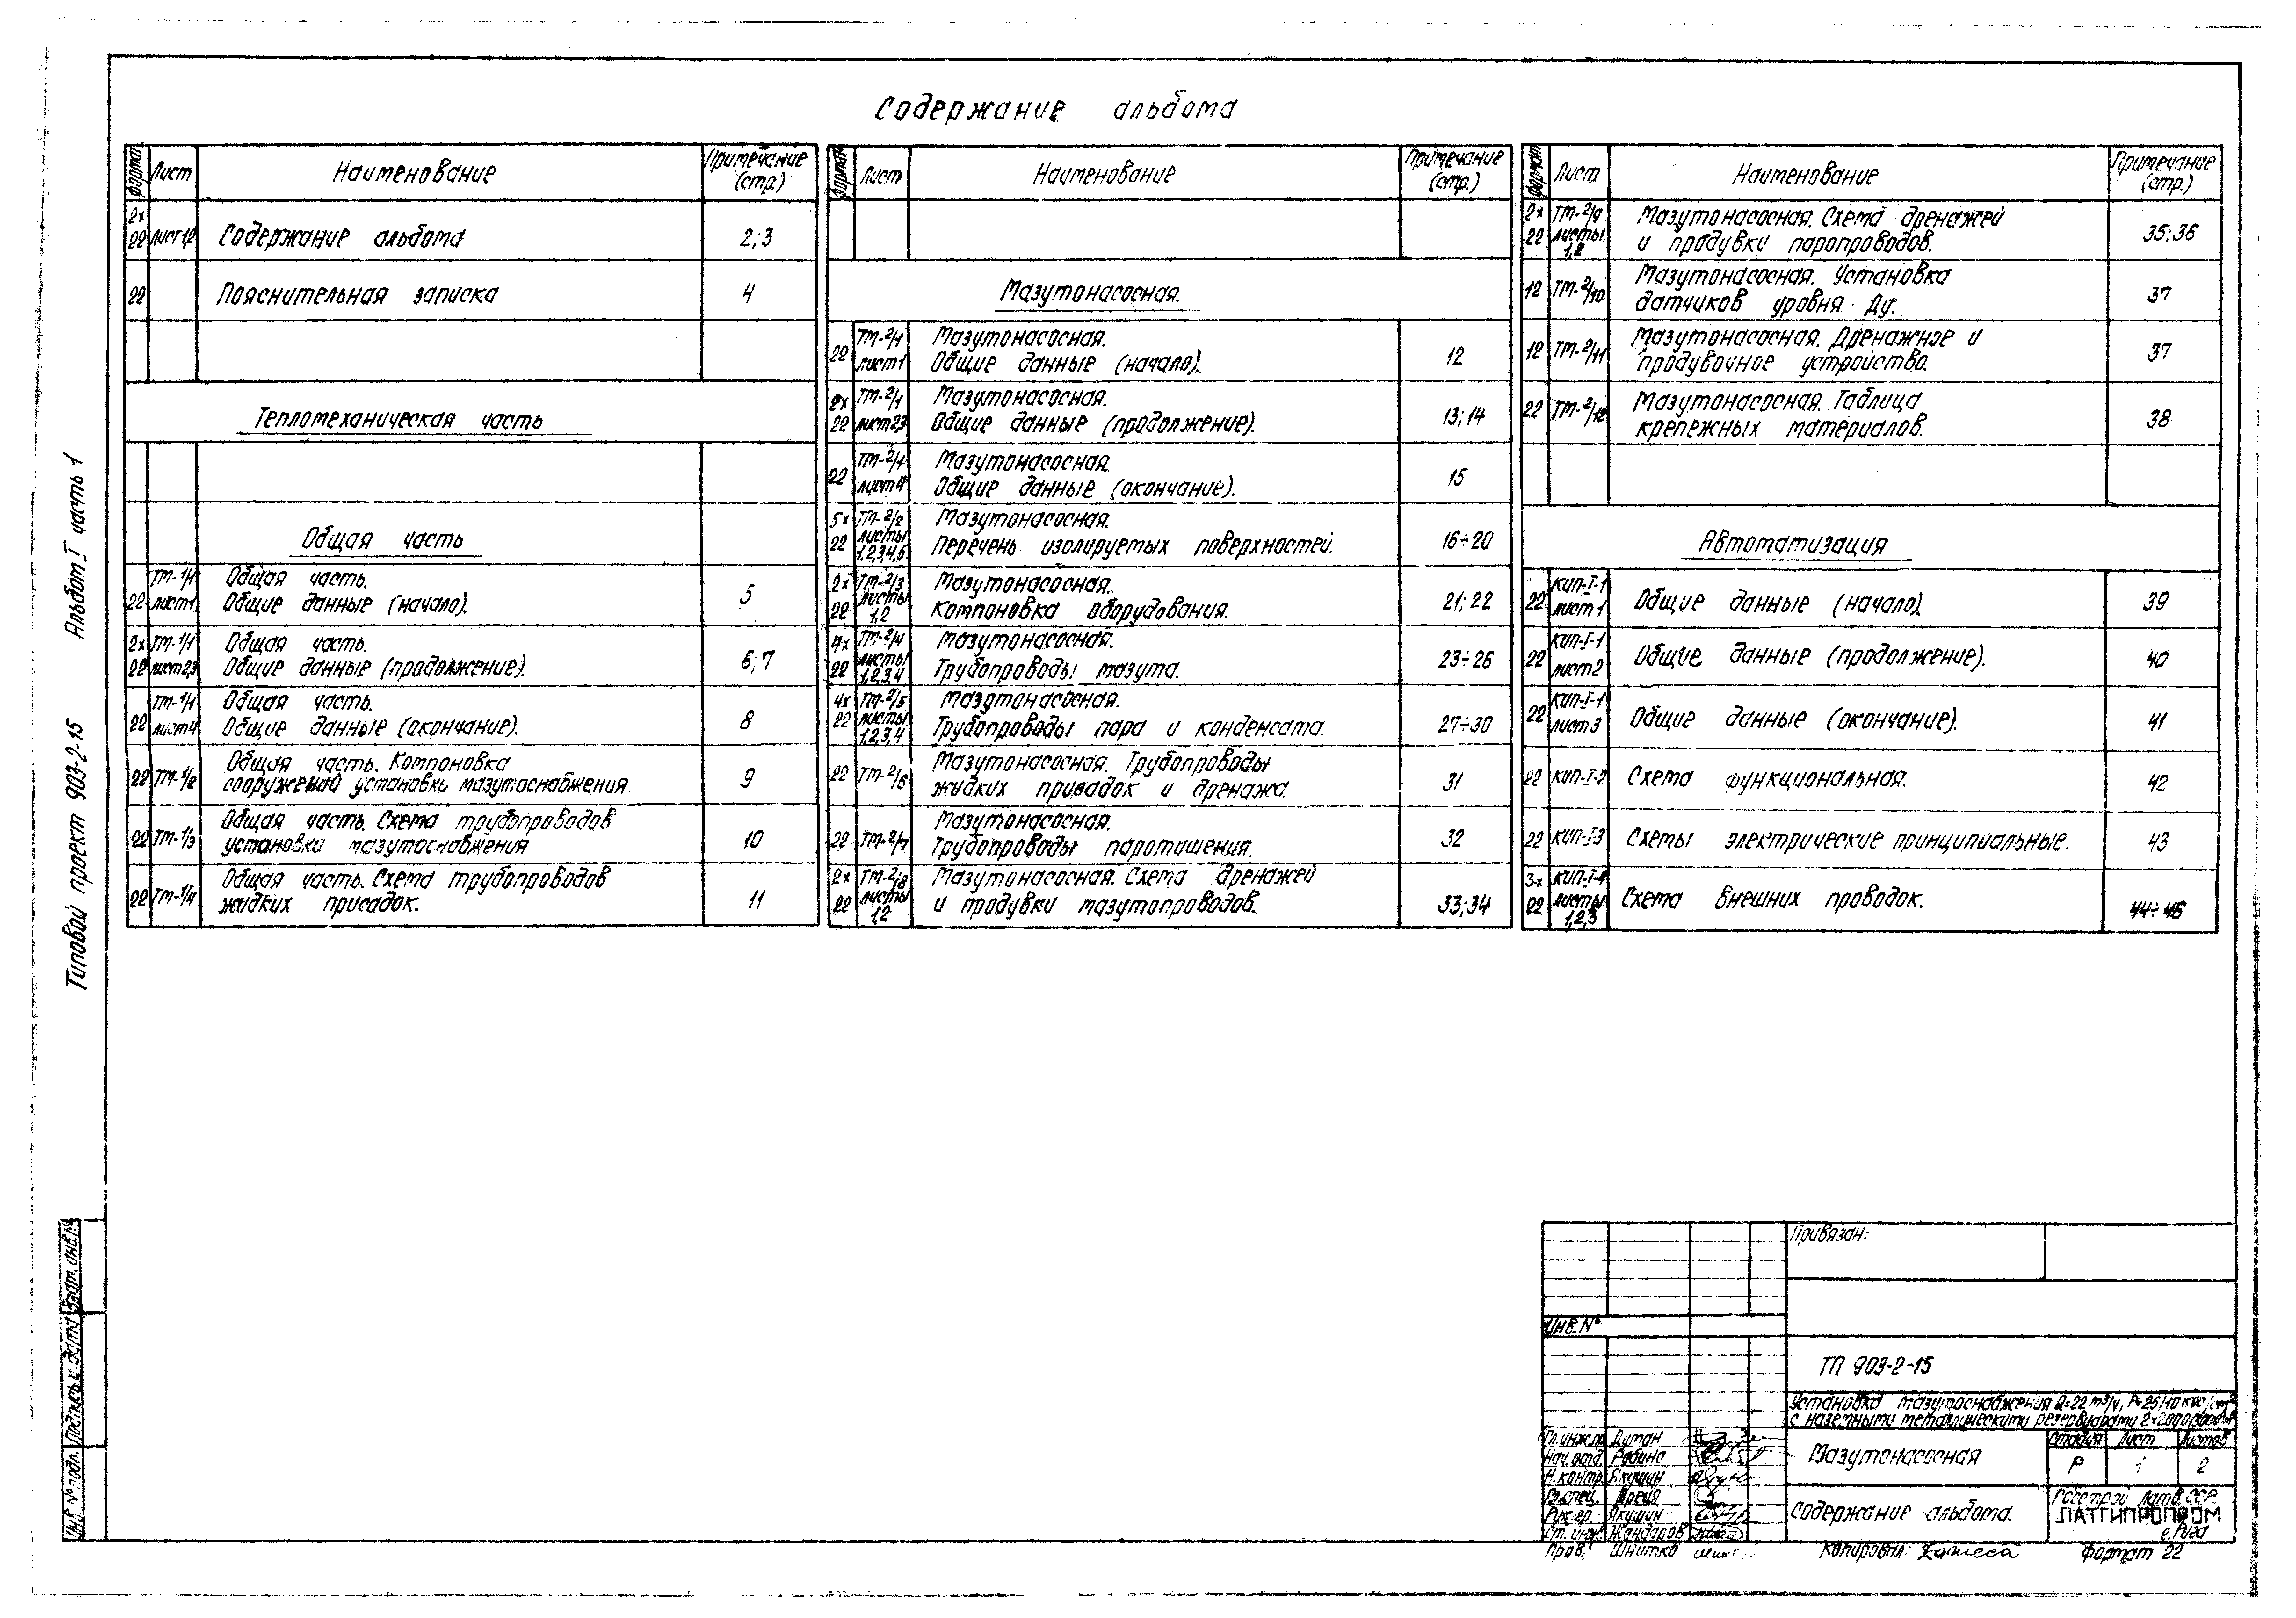 Содержание альбома
Формат Лист Наименование Примечание (стр.)
2х 22 лист 1,2 Содержание альбома 2;3
22 Пояснительная записка 4
Тепломеханическая часть
Общая часть
22 ТМ-1/1 лист 1 Общая часть.
Общие данные (начало). 5
2х 22 ТМ-1/1 лист 2,3 Общая часть.
Общие данные (продолжение). 6;7
22 ТМ-1/1 лист 4 Общая часть.
Общие данные (окончание). 8
22 ТМ-1/2 Общая часть. Компоновка
сооружений установки мазутоснабжения 9
22 ТМ-1/3 Общая часть. Схема трубопроводов
установки мазутоснабжения 10
22 ТМ-1/4 Общая часть. Схема трубопроводов
жидких присадок. 11
Формат Лист Наименование Примечание (стр.)
Мазутонасосная.
22 ТМ-2/1 лист 1 Мазутонасосная.
Общие данные (начало). 12
2х 22 ТМ-2/1 лист 2,3 Мазутонасосная.
Общие данные (продолжение). 13;14
22 ТМ-2/1 лист 4 Мазутонасосная.
Общие данные (окончание). 15
5х 22 ТМ-2/2 листы 1,2,3,4,5 Мазутонасосная.
Перечень изолируемых поверхностей. 16÷20
2х 22 ТМ-2/3 листы 1,2 Мазутонасосная.
Компоновка оборудования. 21;22
4х 22 ТМ-2/4 листы 1,2,3,4 Мазутонасосная.
Трубопроводы мазута. 23÷26
4х 22 ТМ-2/5 листы 1,2,3,4 Мазутонасосная.
Трубопроводы пара и конденсата. 27÷30
22 ТМ-2/6 Мазутонасосная. Трубопроводы
жидких присадок и дренажа. 31
22 ТМ-2/7 Мазутонасосная.
Трубопроводы паротушения. 32
2х 22 ТМ-2/8 листы 1,2 Мазутонасосная. Схема дренажей
и продувки мазутопроводов. 33;34
Формат Лист Наименование Примечание (стр.)
2х 22 ТМ-2/9 листы 1,2 Мазутонасосная. Схема дренажей
и продувки паропроводов. 35;36
12 ТМ-2/10 Мазутонасосная. Установка
датчиков уровня Ду. 37
12 ТМ-2/11 Мазутонасосная. Дренажное и
продувочное устройство. 37
22 ТМ-2/12 Мазутонасосная. Таблица
крепежных материалов. 38
Автоматизация
22 КИП-I-1 лист 1 Общие данные (начало) 39
22 КИП-I-1 лист 2 Общие данные (продолжение). 40
22 КИП-I-1 лист 3 Общие данные (окончание). 41
22 КИП-I-2 Схема функциональная. 42
22 КИП-I-3 Схемы электрические принципиальные. 43
3х 22 КИП-I-4 листы 1,2,3 Схема внешних проводок. 44÷46
Типовой проект 903-2-15 Альбом I часть 1
Инв. № подл. Подпись и дата Взам. инв. №
Привязан:
Инв. №
ТП 903-2-15
Установка мазутоснабжения Q=22 м³/ч, Р=25
с наземными металлическими резервуарами
Гл. инж. пр. Думан
Нач. отд. Рабина
Н. контр. Якушин
Гл. спец. Время
Рук. гр. Якушин
Ст. инж. Жандаров
Пров. Шнитко
Мазутонасосная
Стадия Лист Листов
Р 1 2
Содержание альбома.
Госстрой Латв. ССР
ЛАТГИПРОПРОМ
г. Рига
Копировал: Формат 22